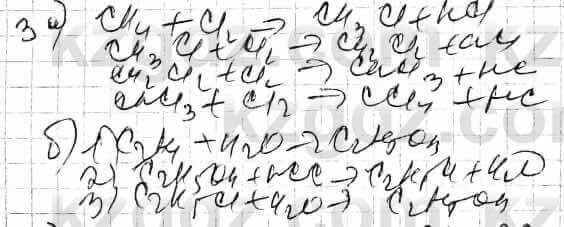 3 а) CH4 + Cl2 → CH3Cl + HCl
CH3Cl + Cl2 → CH2Cl2 + HCl
CH2Cl2 + Cl2 → CHCl3 + HC
CHCl3 + Cl2 → CCl4 + HC
б) 1) C2H4 + H2O → C2H5OH
2) C2H5OH + HCl → C2H5Cl + H2O
3) C2H5Cl + H2O → C2H5OH